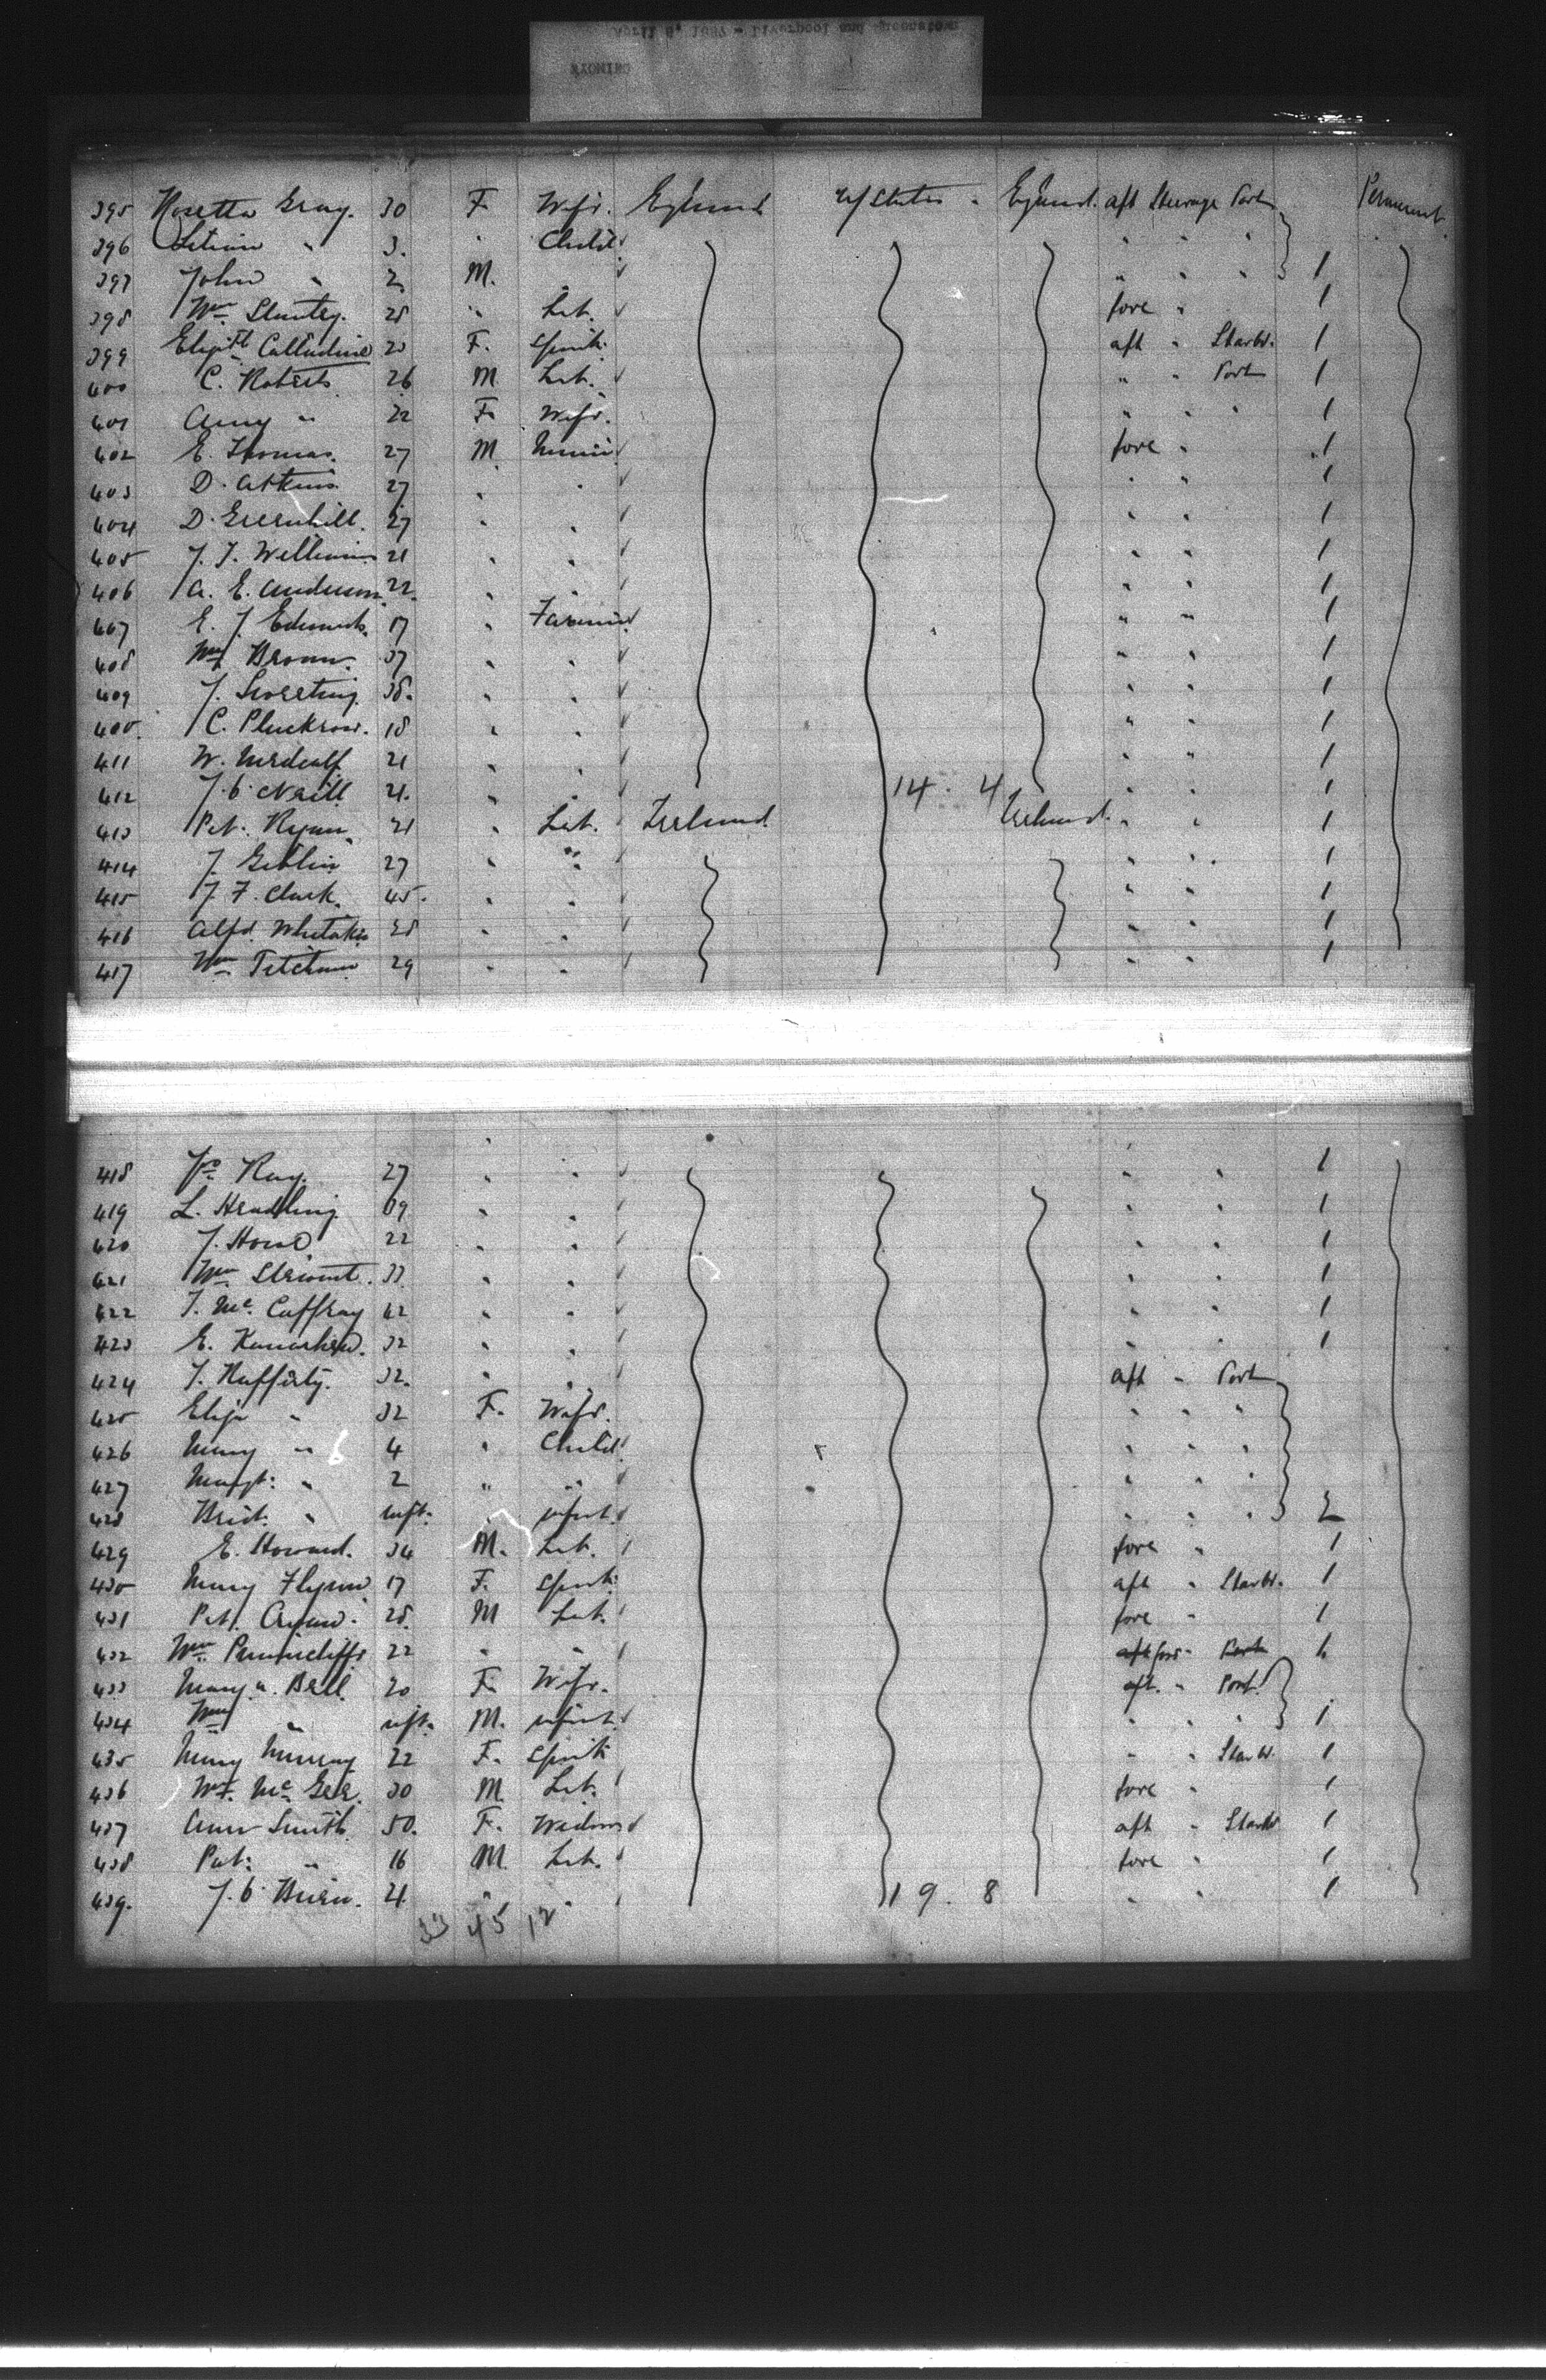 395 Rosetta Gray. 30 F. Wife. England U/States - England. aft Steerage Port Permanent
396 " 3. " Child " " "
397 John " 2 M. " " " " 1
398 Wm Stanley. 28 " Lab. fore " 1
399 Elizth 23 F. Spinst. aft " Starbd. 1
400 C. Roberts 26 M Lab. " " Port 1
401 Amy " 22 F. Wife. " " " 1
402 E. Thomas. 27 M. Miner fore " 1
403 D. Atkins 27 " " " " 1
404 D. Greenhill. 27 " " " " 1
405 J. J. Williams 21 " " " " 1
406 A. E. Anderson 22. " " " " 1
407 E. J. Edmunds. 17 " Farmer " " 1
408 Wm Brown. 37 " " " " 1
409 J. 38. " " " " 1
400. C. Pluckrose. 18 " " " " 1
411 W. Medcalf 21 " " " " 1
412 J. O'Neill 21. " " 14. 4 " " 1
413 Pat. Ryan 21 " Lab. Ireland Ireland. " " 1
414 J. Giblin 27 " " " " 1
415 J. F. Clark. 45. " " " " 1
416 Alfd. Whitaker 28 " " " " 1
417 Wm 29 " " " " 1
418 Ray. 27 " " " " 1
419 L. 39 " " " " 1
420 J. Howe 22 " " " " 1
421 Wm Stewart. 33. " " " " 1
422 J. Mc. Caffray 42 " " " " 1
423 E. 32 " " " " 1
424 J. Rafferty. 32. " " aft " Port
425 Eliza " 32 F. Wife. " " "
426 Mary " 4 " Child " " "
427 Margt: " 2 " " " " "
428 Brid: " inft. " infant. " " " 2
429 E. Howard. 34 M. Lab. fore " 1
430 Mary Flynn 17 F. Spinst. aft " Starbd. 1
431 Pat. 28. M Lab. fore " 1
432 Wm 22 " " aft fore " Port 1
433 Mary A. Bell. 20 F. Wife. aft. " Port
434 Wm " inft. M. infant. " " " 1
435 Mary Murray 22 F. Spinst " " Starbd. 1
436 Mc. Gee. 30 M. Lab. fore " 1
437 Ann Smith 50. F. Widow aft " Starbd 1
438 Pat: " 16 M. Lab. fore " 1
439. J. O'Brien. 21. " " 19. 8 " " 1
33 45 12